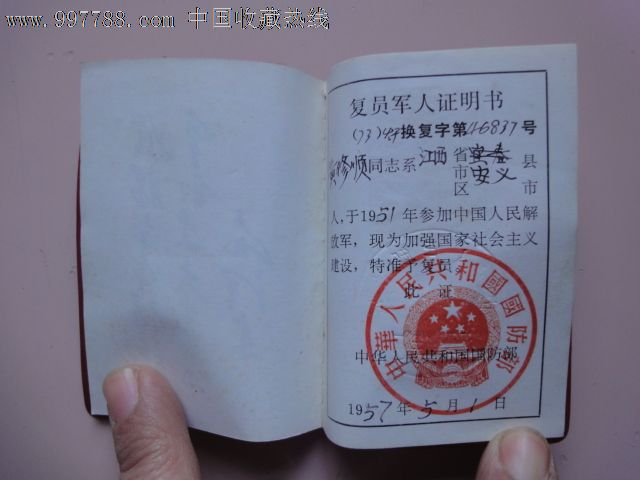 www.997788.com 中国收藏热线
复员军人证明书
(73)换复字第46837号
修顺同志系江西省市区安义县市
人,于1951年参加中国人民解
放军,现为加强国家社会主义
建设,特准予复员。
此证
中华人民共和国国防部
中華人民共和國國防部
1957年5月1日